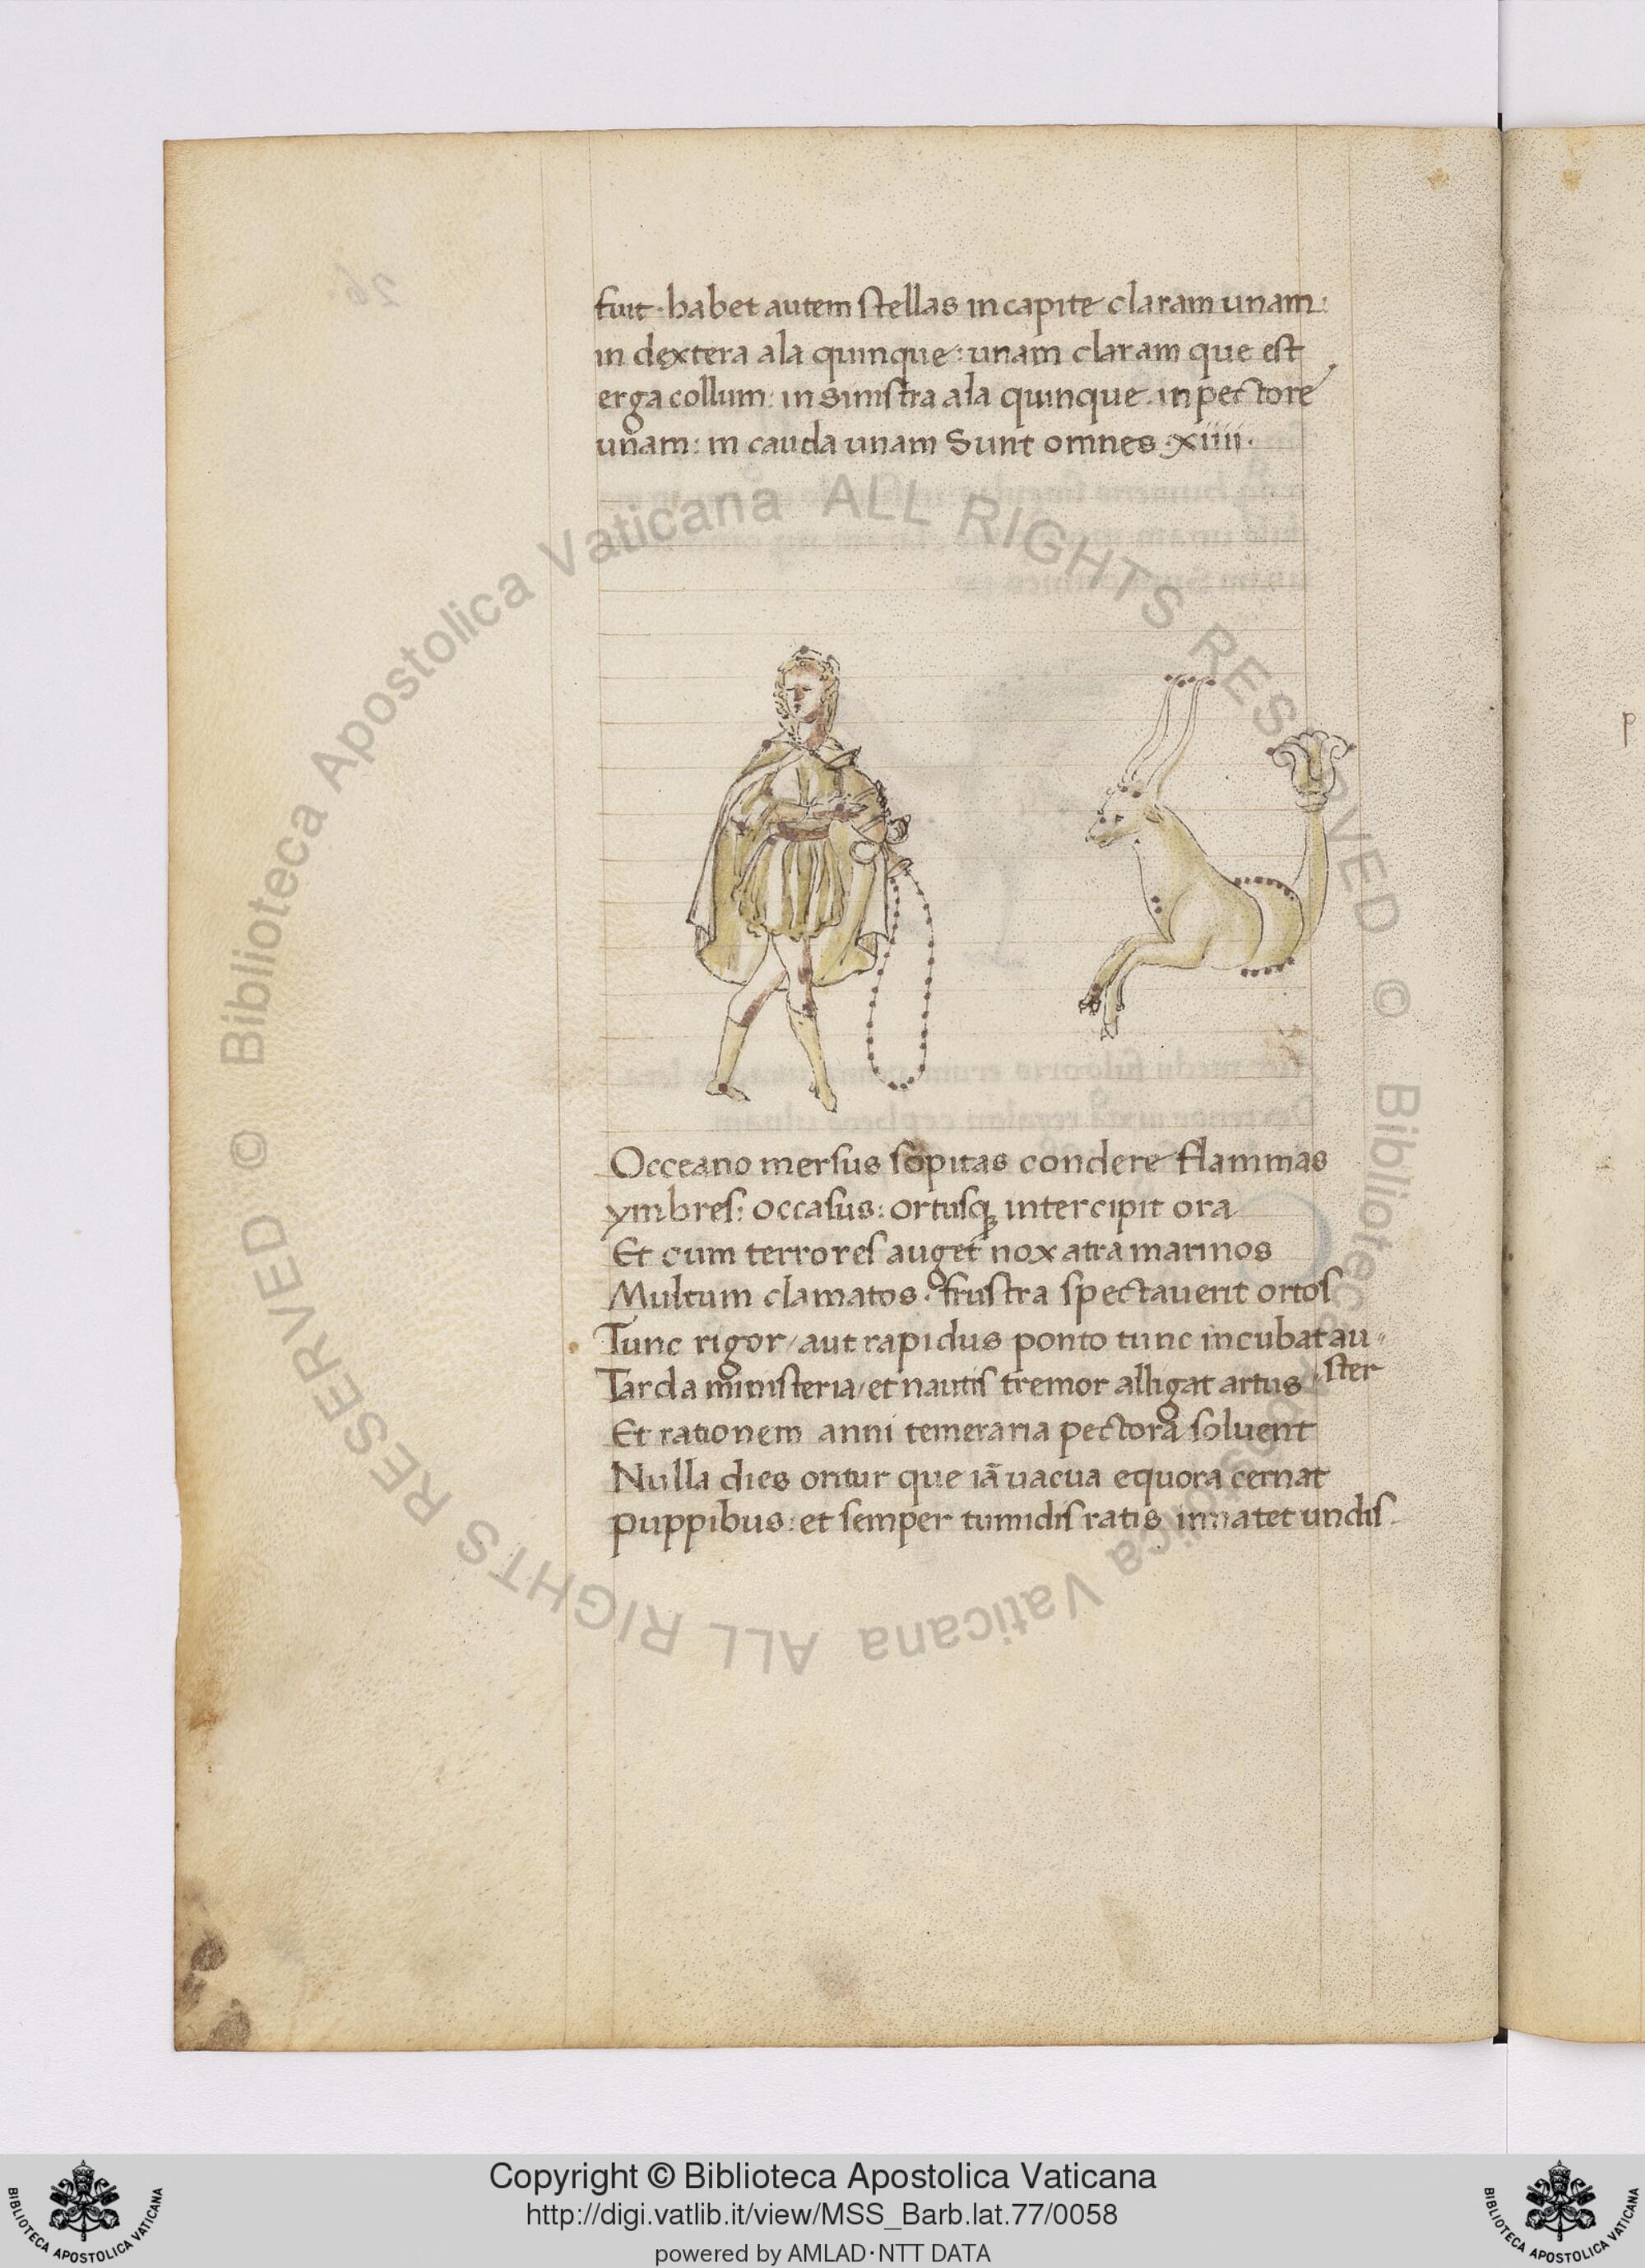 fuit. habet autem stellas in capite claram unam:
in dextera ala quinque: unam claram que est
erga collum: in sinistra ala quinque. in pectore
unam: in cauda unam Sunt omnes .xiiii.
Occeano mersus sopitas condere flammas
ymbres: occasus: ortusq; intercipit ora
Et cum terrores auget nox atra marinos
Multum clamatos. frustra spectauerit ortos
Tunc rigor/aut rapidus ponto tunc incubat au
ster
Tarda ministeria/et nautis tremor alligat artus
Et rationem anni temeraria pectora soluent
Nulla dies oritur que iã uacua equora cernat
puppibus: et semper tumidis ratis innatet undis.
p
© Biblioteca Apostolica Vaticana ALL RIGHTS RESERVED © Biblioteca Apostolica Vaticana ALL RIGHTS RESERVED
Copyright © Biblioteca Apostolica Vaticana
http://digi.vatlib.it/view/MSS_Barb.lat.77/0058
powered by AMLAD·NTT DATA
BIBLIOTECA APOSTOLICA VATICANA
BIBLIOTECA APOSTOLICA VATICANA